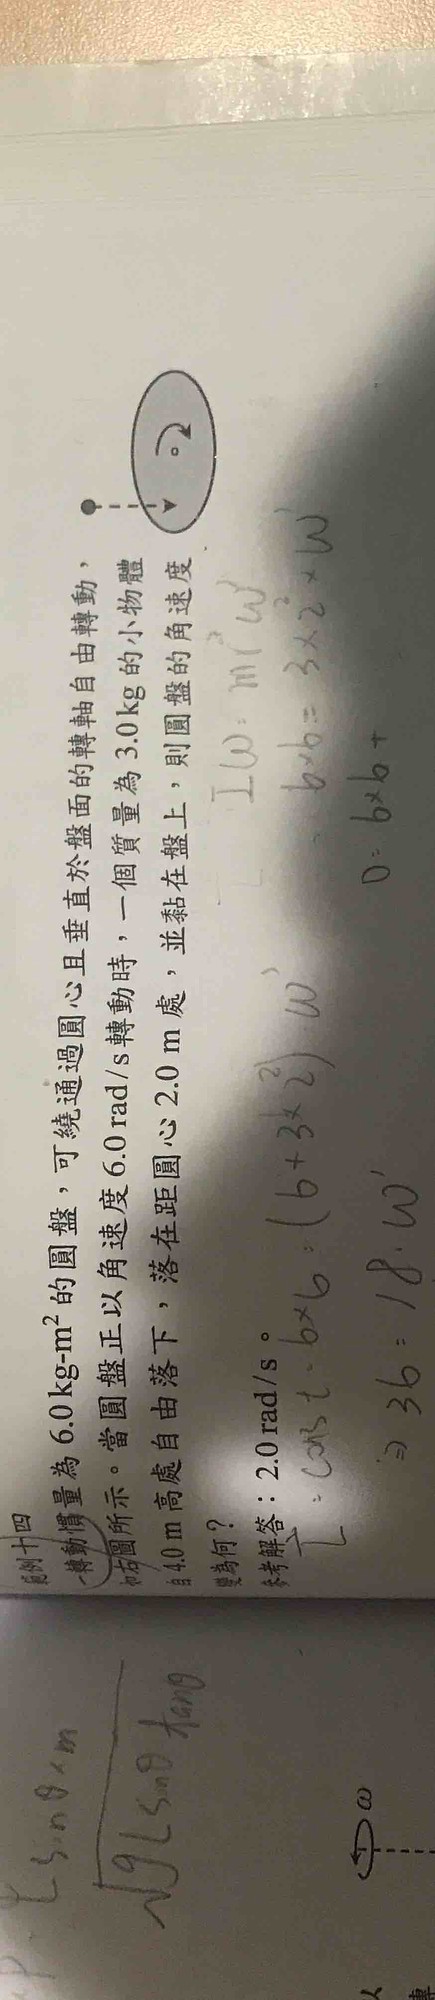 範例十四
一轉動慣量為 6.0 kg-m² 的圓盤,可繞通過圓心且垂直於盤面的轉軸自由轉動,
如右圖所示。當圓盤正以角速度 6.0 rad/s 轉動時,一個質量為 3.0 kg 的小物體
自 4.0 m 高處自由落下,落在距圓心 2.0 m 處,並黏在盤上,則圓盤的角速度
變為何?
參考解答:2.0 rad/s。
Iω = mr²ω'
6×6 = 3×2²×ω'
0 = 6×6 +
L = const = 6×6 = (6+3×2²) ω'
⇒ 36 = 18·ω'
L sinθ × m
√gL sinθ tanθ
ω